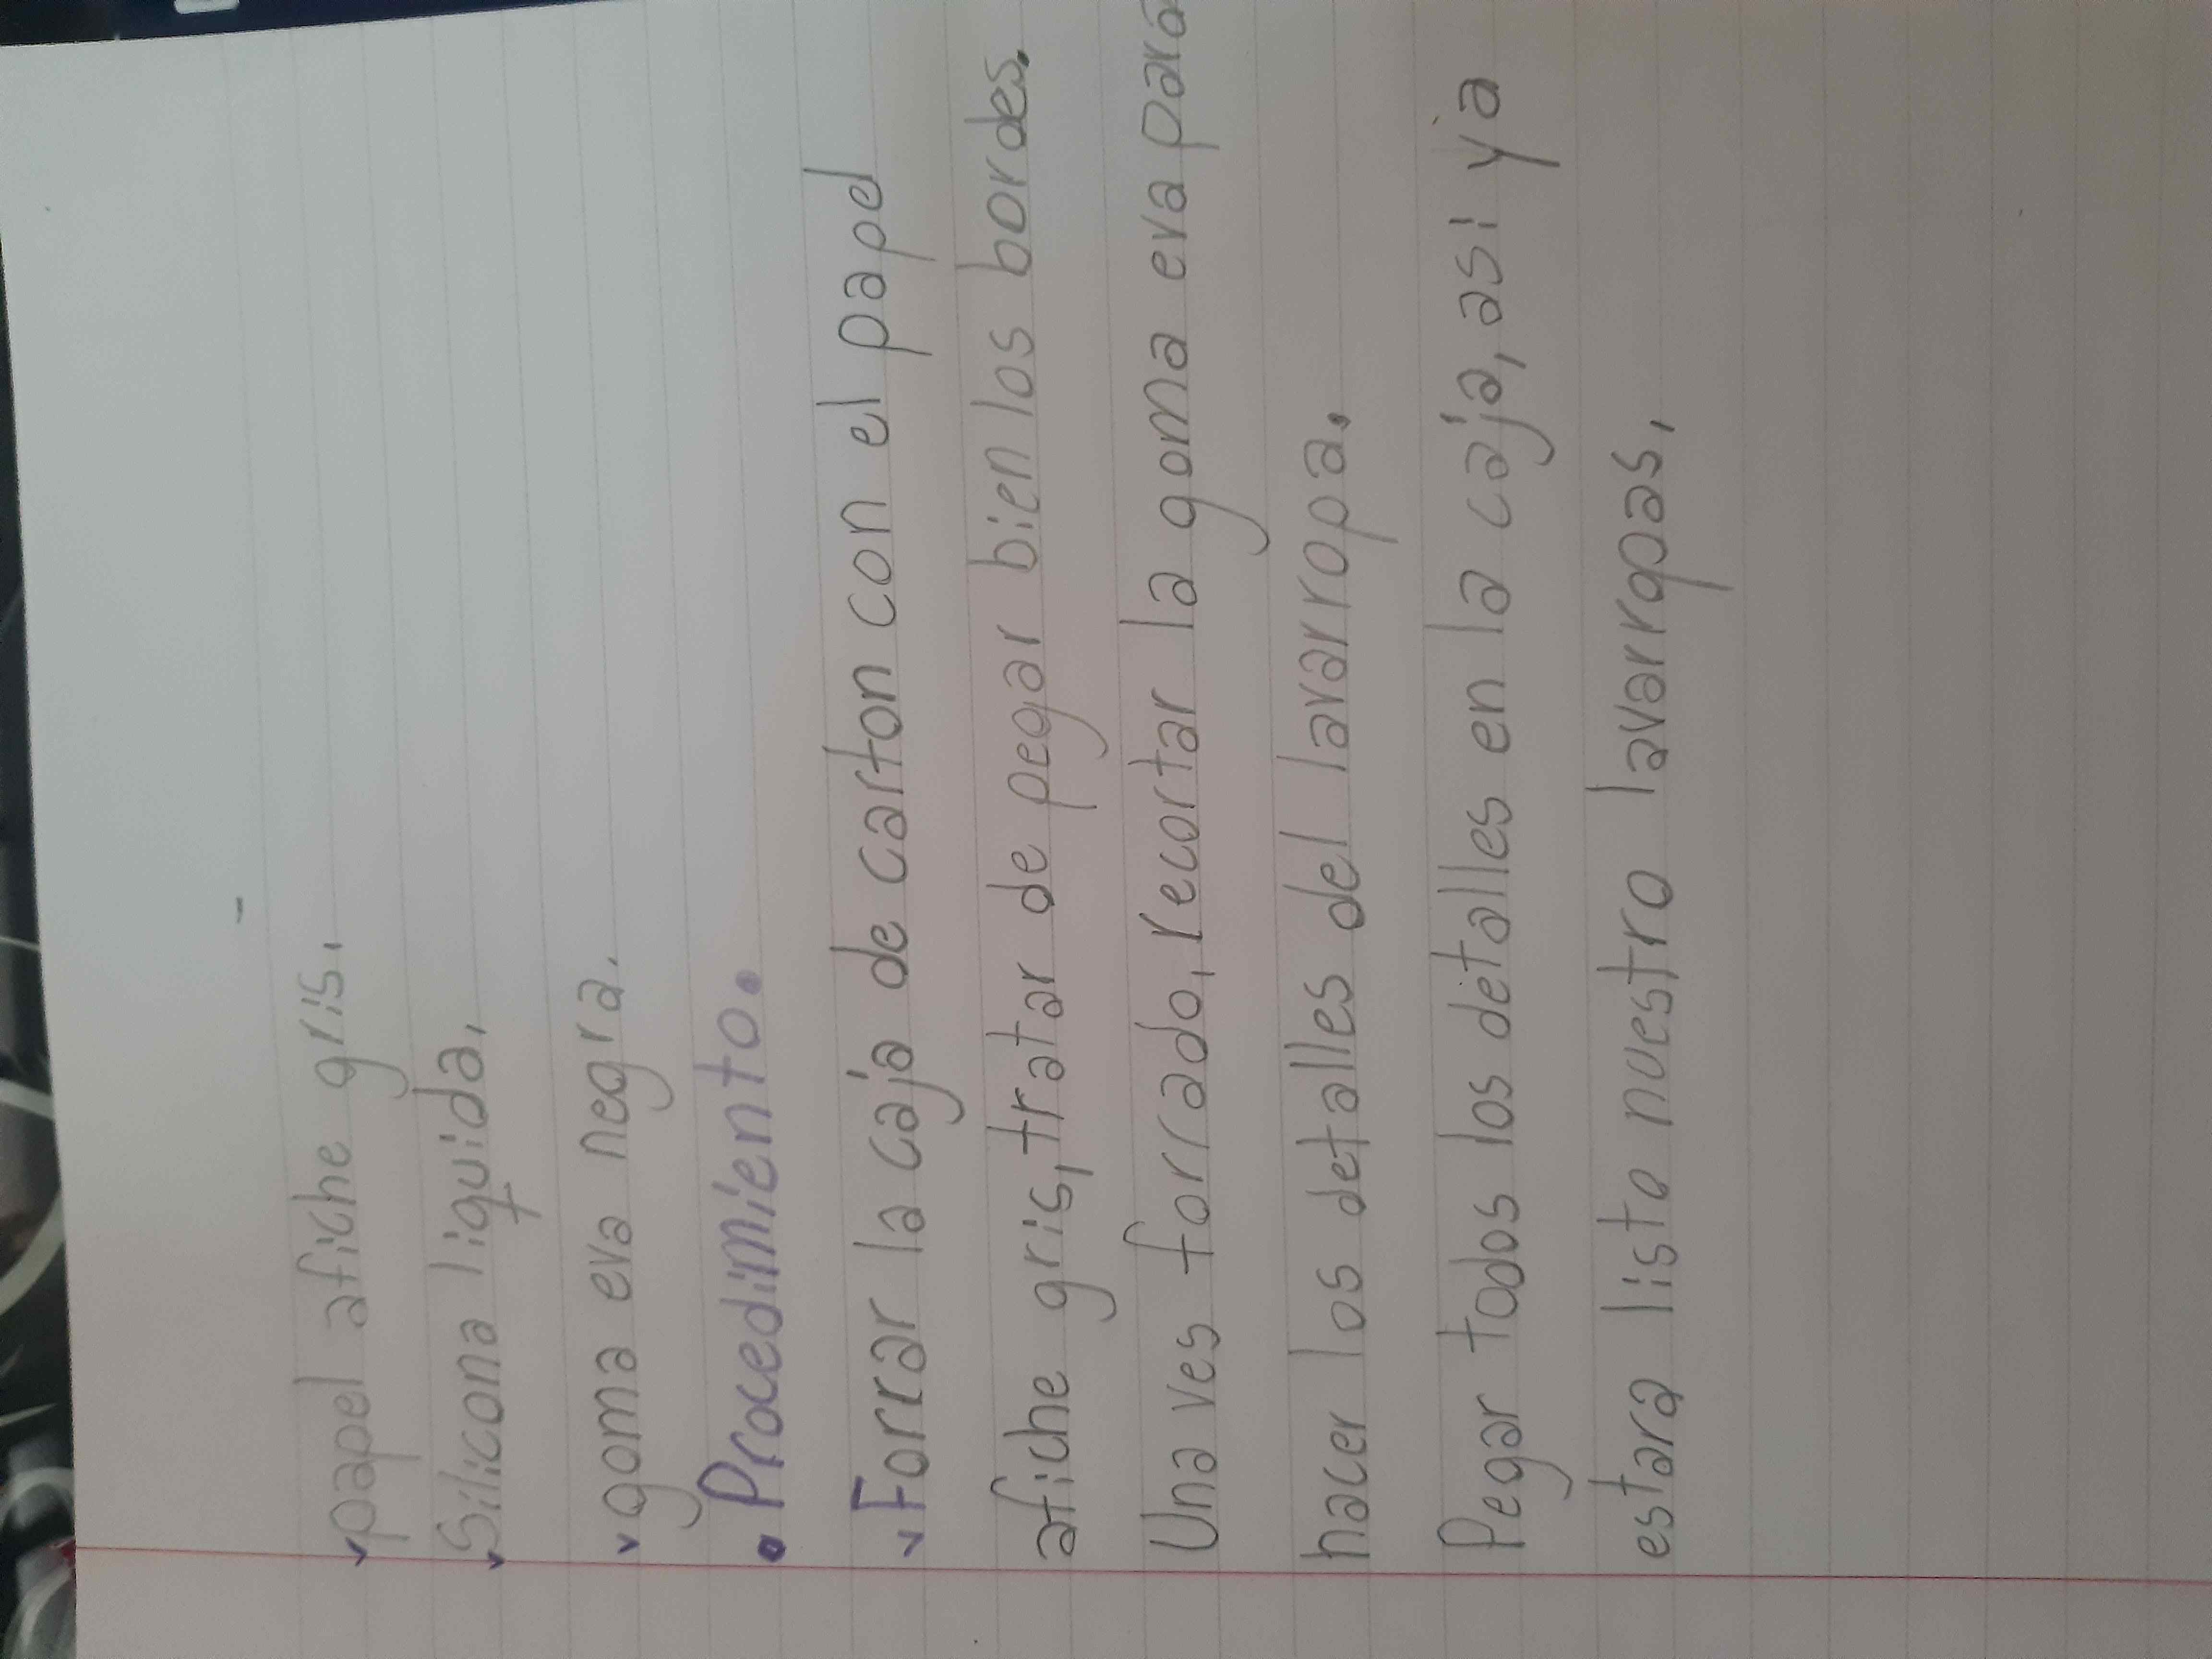 papel afiche gris.
Silicona liquida.
goma eva negra.
• Procedimiento.
Forrar la caja de carton con el papel
afiche gris, tratar de pegar bien los bordes.
Una ves forrado, recortar la goma eva para
hacer los detalles del lavarropa.
Pegar todos los detalles en la caja, asi ya
estara listo nuestro lavarropas.